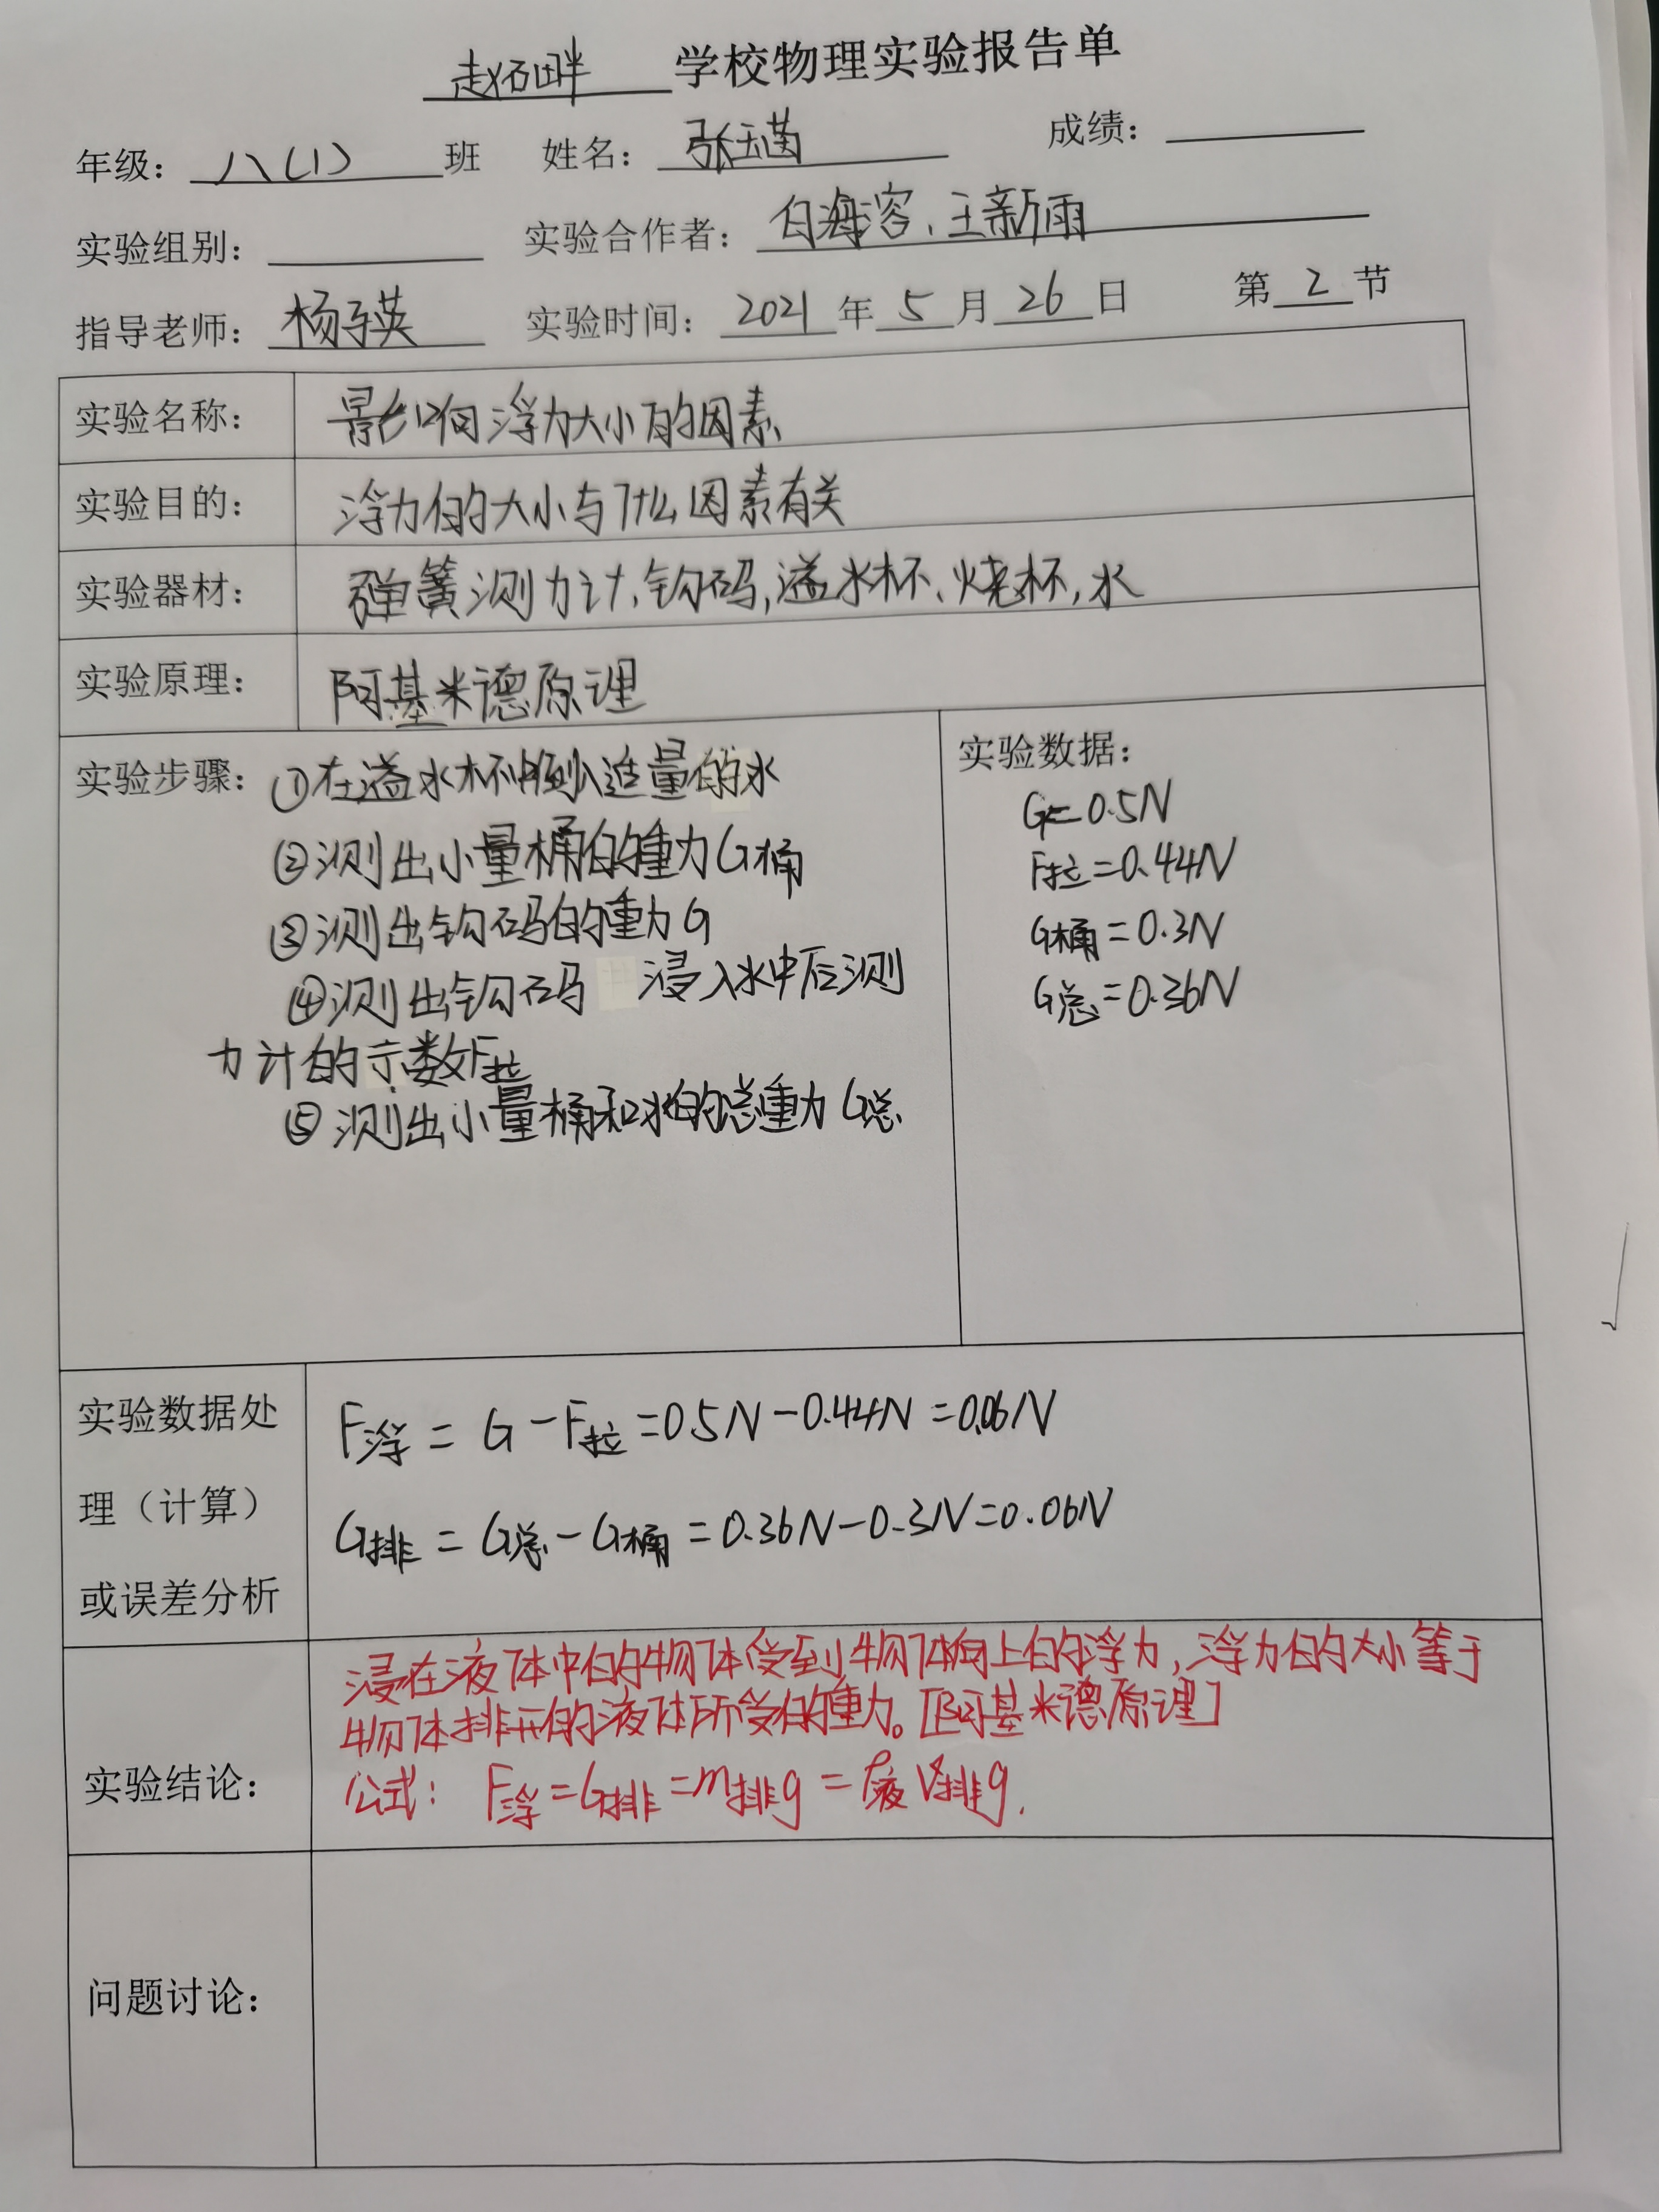 赵石畔 学校物理实验报告单
年级：八(1) 班 姓名：张玉茵 成绩：
实验组别： 实验合作者：白海容、王新雨
指导老师：杨子英 实验时间：2021 年 5 月 26 日 第 2 节
实验名称： 影响浮力大小的因素
实验目的： 浮力的大小与什么因素有关
实验器材： 弹簧测力计、钩码，溢水杯、烧杯，水
实验原理： 阿基米德原理
实验步骤： ①在溢水杯中倒入适量的水
②测出小量桶的重力G桶
③测出钩码的重力G
④测出钩码 浸入水中后测
力计的示数F拉
⑤测出小量桶和水的总重力G总
实验数据：
G=0.5N
F拉=0.44N
G桶=0.3N
G总=0.36N
实验数据处
理（计算）
或误差分析
F浮=G-F拉=0.5N-0.44N=0.06N
G排=G总-G桶=0.36N-0.3N=0.06N
实验结论：
浸在液体中的物体受到物体向上的浮力，浮力的大小等于
物体排开的液体所受的重力。[阿基米德原理]
公式：F浮=G排=m排g=ρ液V排g.
问题讨论：